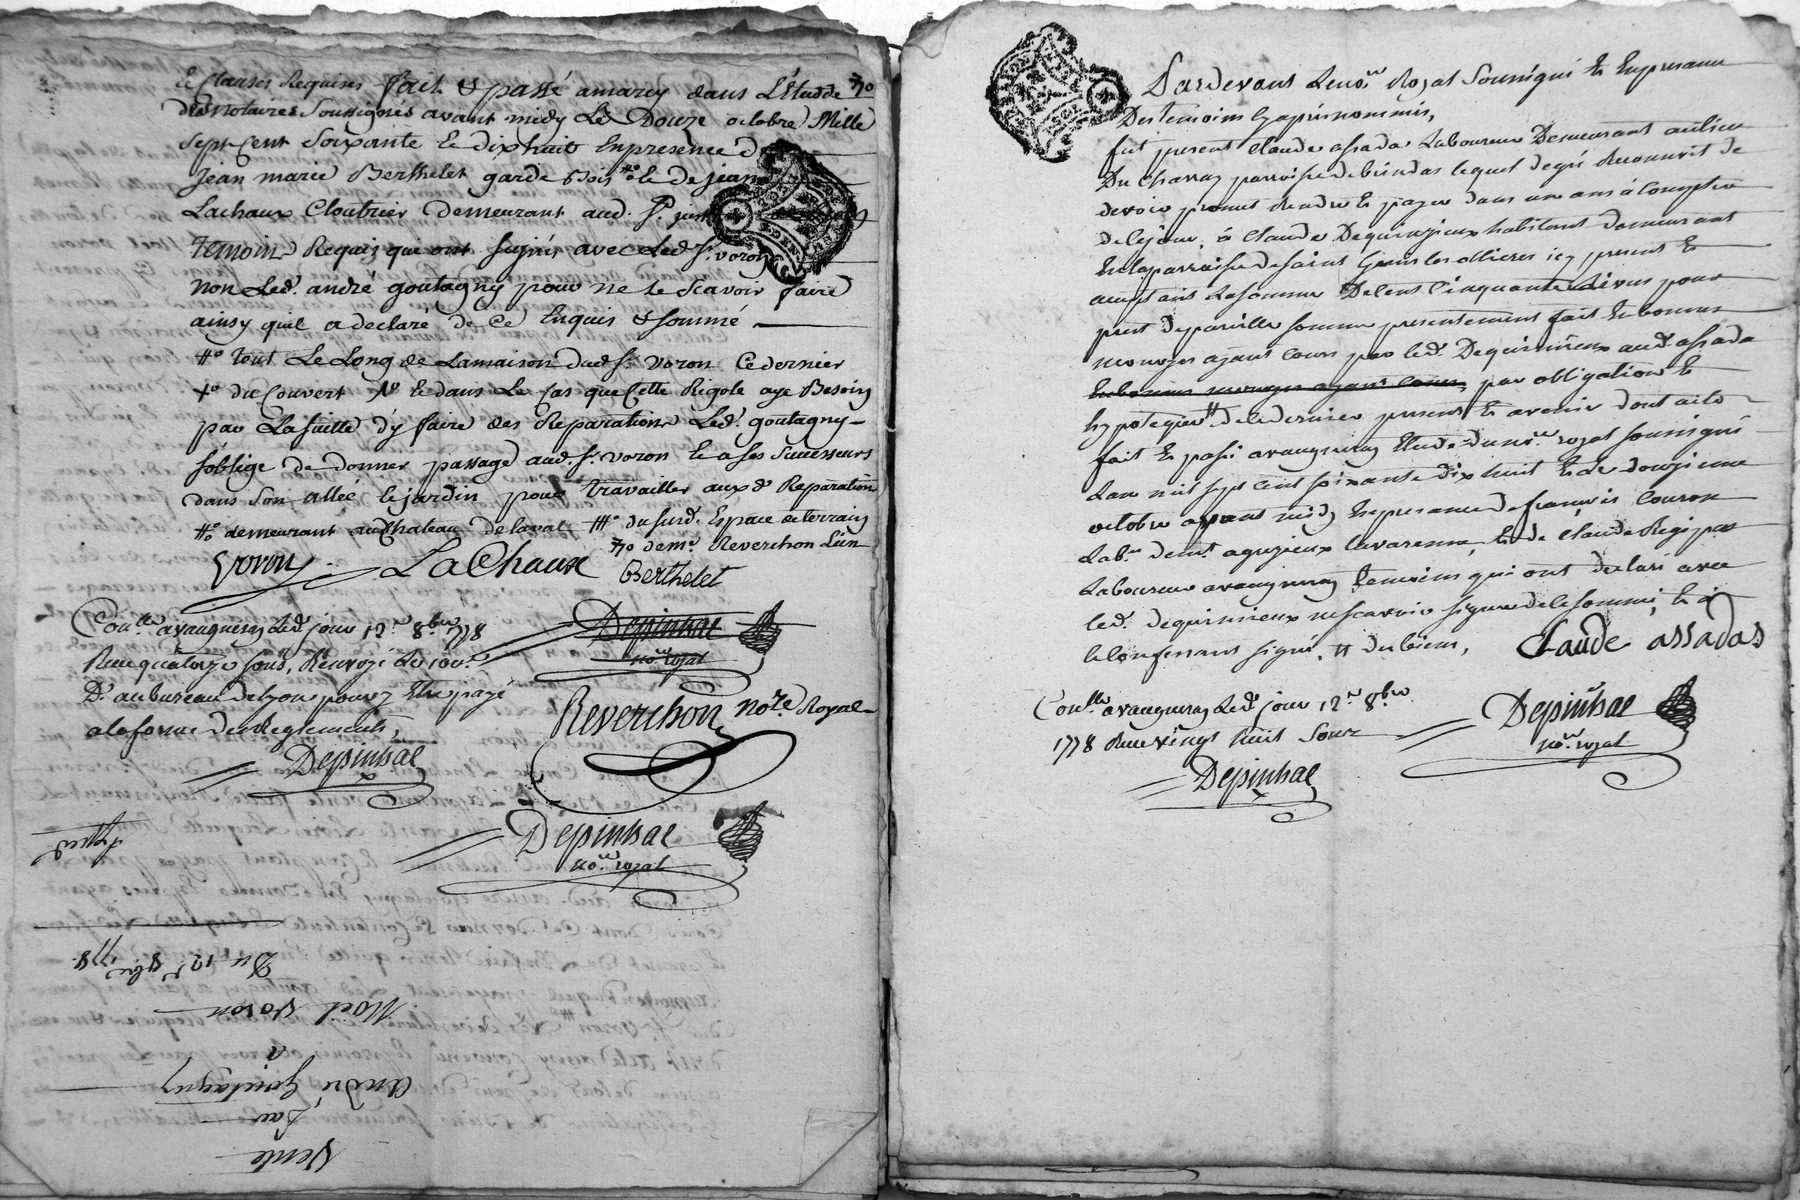 et Clauses Requises fait & passé a marcy dans L'Etude
des notaires Soussignés avant midy Le Douze octobre Mille
Sept Cent Soixante et dixhuit En presence d
jean marie Berthelet garde Bois et de jean
Lachaux Cloutrier demeurant aud.
Temoins Requis qui ont signés avec Led Sr. voron
non Led. andré goutagny pour ne le scavoir faire
ainsy quil a declaré de Ce Enquis & sommé
tout Le Long de La maison dud Sr. voron Ce dernier
du Couvert et dans Le Cas que Cette Rigole aye Besoin
par La suitte d'y faire des Reparations Led. goutagny
s'oblige de donner passage aud. Sr. voron et a ses Successeurs
dans Son allée et jardin pour travailler aux d Reparation
demeurant au Chateau de laval du surd. Espace de terrain
dem.t Reverchon L'un
Voron LaChaux Berthelet
Con.lle a vaugneray Led. jour 12.e 8.bre 1778
Reçu quatorze sous, Renvoyé Le
D. au bureau de Lyon pour y Etre payé
a la forme des Reglements,
Depinhac
Depinhac
no.re royal
Reverchon no.re Royal
Depinhac
no.re royal
Du 12.e 8.bre 1778
Noël voron
a
André Goutagny
Par
Vente
Pardevant Le no.re Royal Soussigné et En presence
Des temoins Cy apres nommés,
fut present Claude assada Laboureur Demeurant au lieu
Du Charray parroisse de de gré Reconnoit de
devoir promet Rendre et payer dans un an a Compter
de Ce jour, à Claude Dequinsieux habitant demeurant
En la parroisse de saint Genis les ollieres icy present et
acceptant La somme De Cent Cinquante Livres pour
pret de pareille somme presentement fait En bonnes
monoyes ayant Cours par led. Dequirieux aud. assada
En bonnes monoyes ayant Cours, par obligation et
hypoteque de Ce dernier present et avenir dont acte
fait et passé a vaugneray Etude du no.re royal soussigné
L'an mil sept cent soixante dix huit et le douzieme
octobre avant midy En presence de françois Couron
Lab.r dem.t a grezieux Lavarenne, et de Claude
Laboureur a vaugneray temoins qui ont declaré avec
led. dequirieux ne scavoir signer de Ce sommé, et a
le Confessant signé, du biens,
Claude assadas
Con.lle a vaugneray Led. jour 12.e 8.bre
1778 Reçu vingt huit Sous
Depinhac
Depinhac
no.re royal